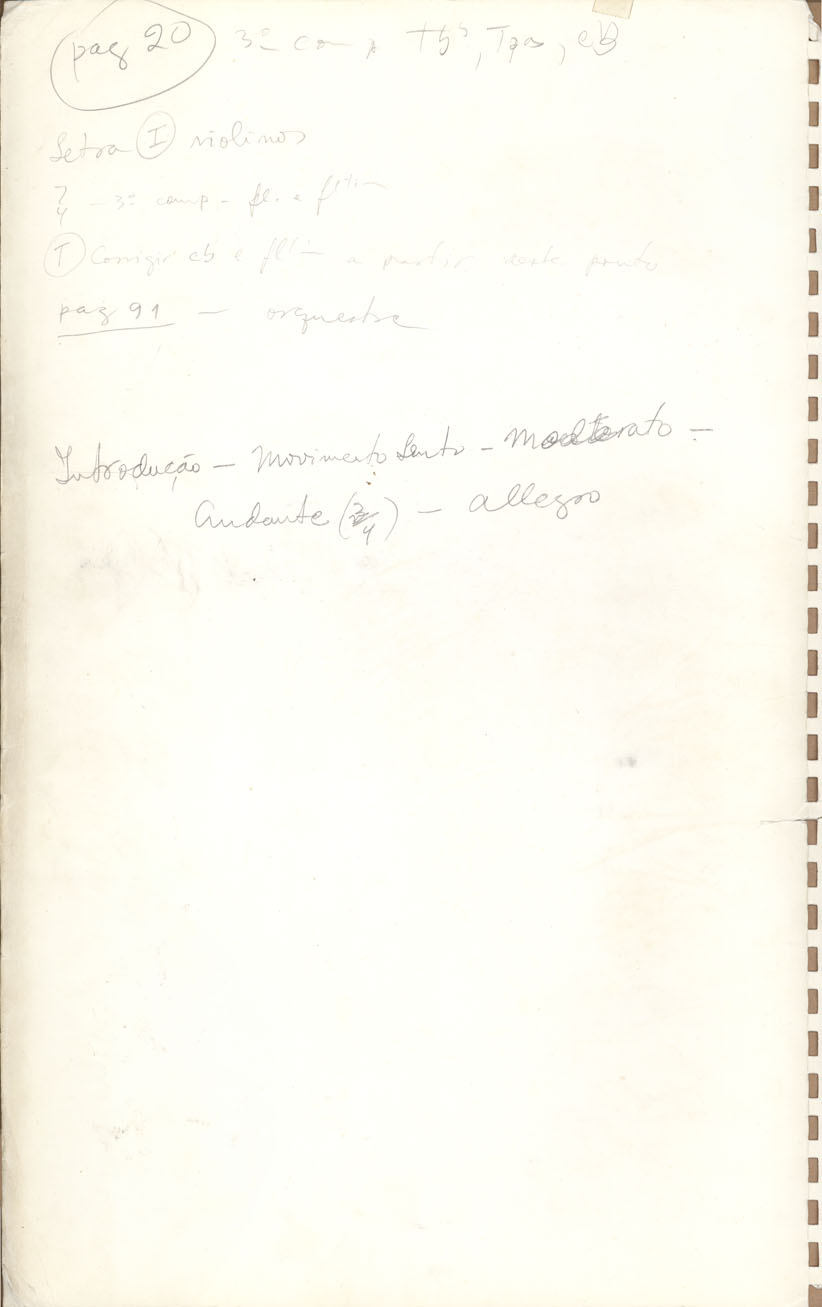 pag 20 3º comp Tbs, Tpas, cb
Letra I violinos
2/4 - 3º comp - fl. e fltim
I Corrigir cb e fltim a partir neste ponto
pag 91 — orquestra
Introdução — Movimento Lento — Moderato —
Andante (2/4) — Allegro